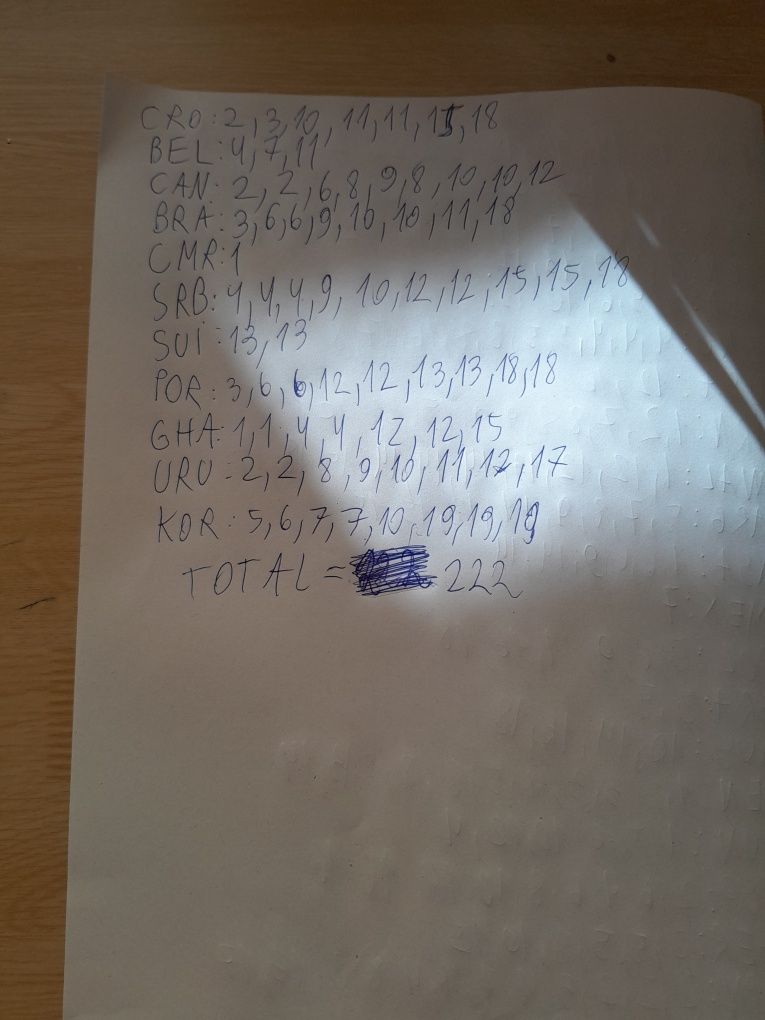 CRO: 2, 3, 10, 11, 11, 15, 18
BEL: 4, 7, 11
CAN: 2, 2, 6, 8, 9, 8, 10, 10, 12
BRA: 3, 6, 6, 9, 10, 10, 11, 18
CMR: 1
SRB: 4, 4, 4, 9, 10, 12, 12, 15, 15, 18
SUI: 13, 13
POR: 3, 6, 6, 12, 12, 13, 13, 18, 18
GHA: 1, 1, 4, 4, 12, 12, 15
URU: 2, 2, 8, 9, 10, 11, 12, 17
KOR: 5, 6, 7, 7, 10, 19, 19, 19
TOTAL = 222